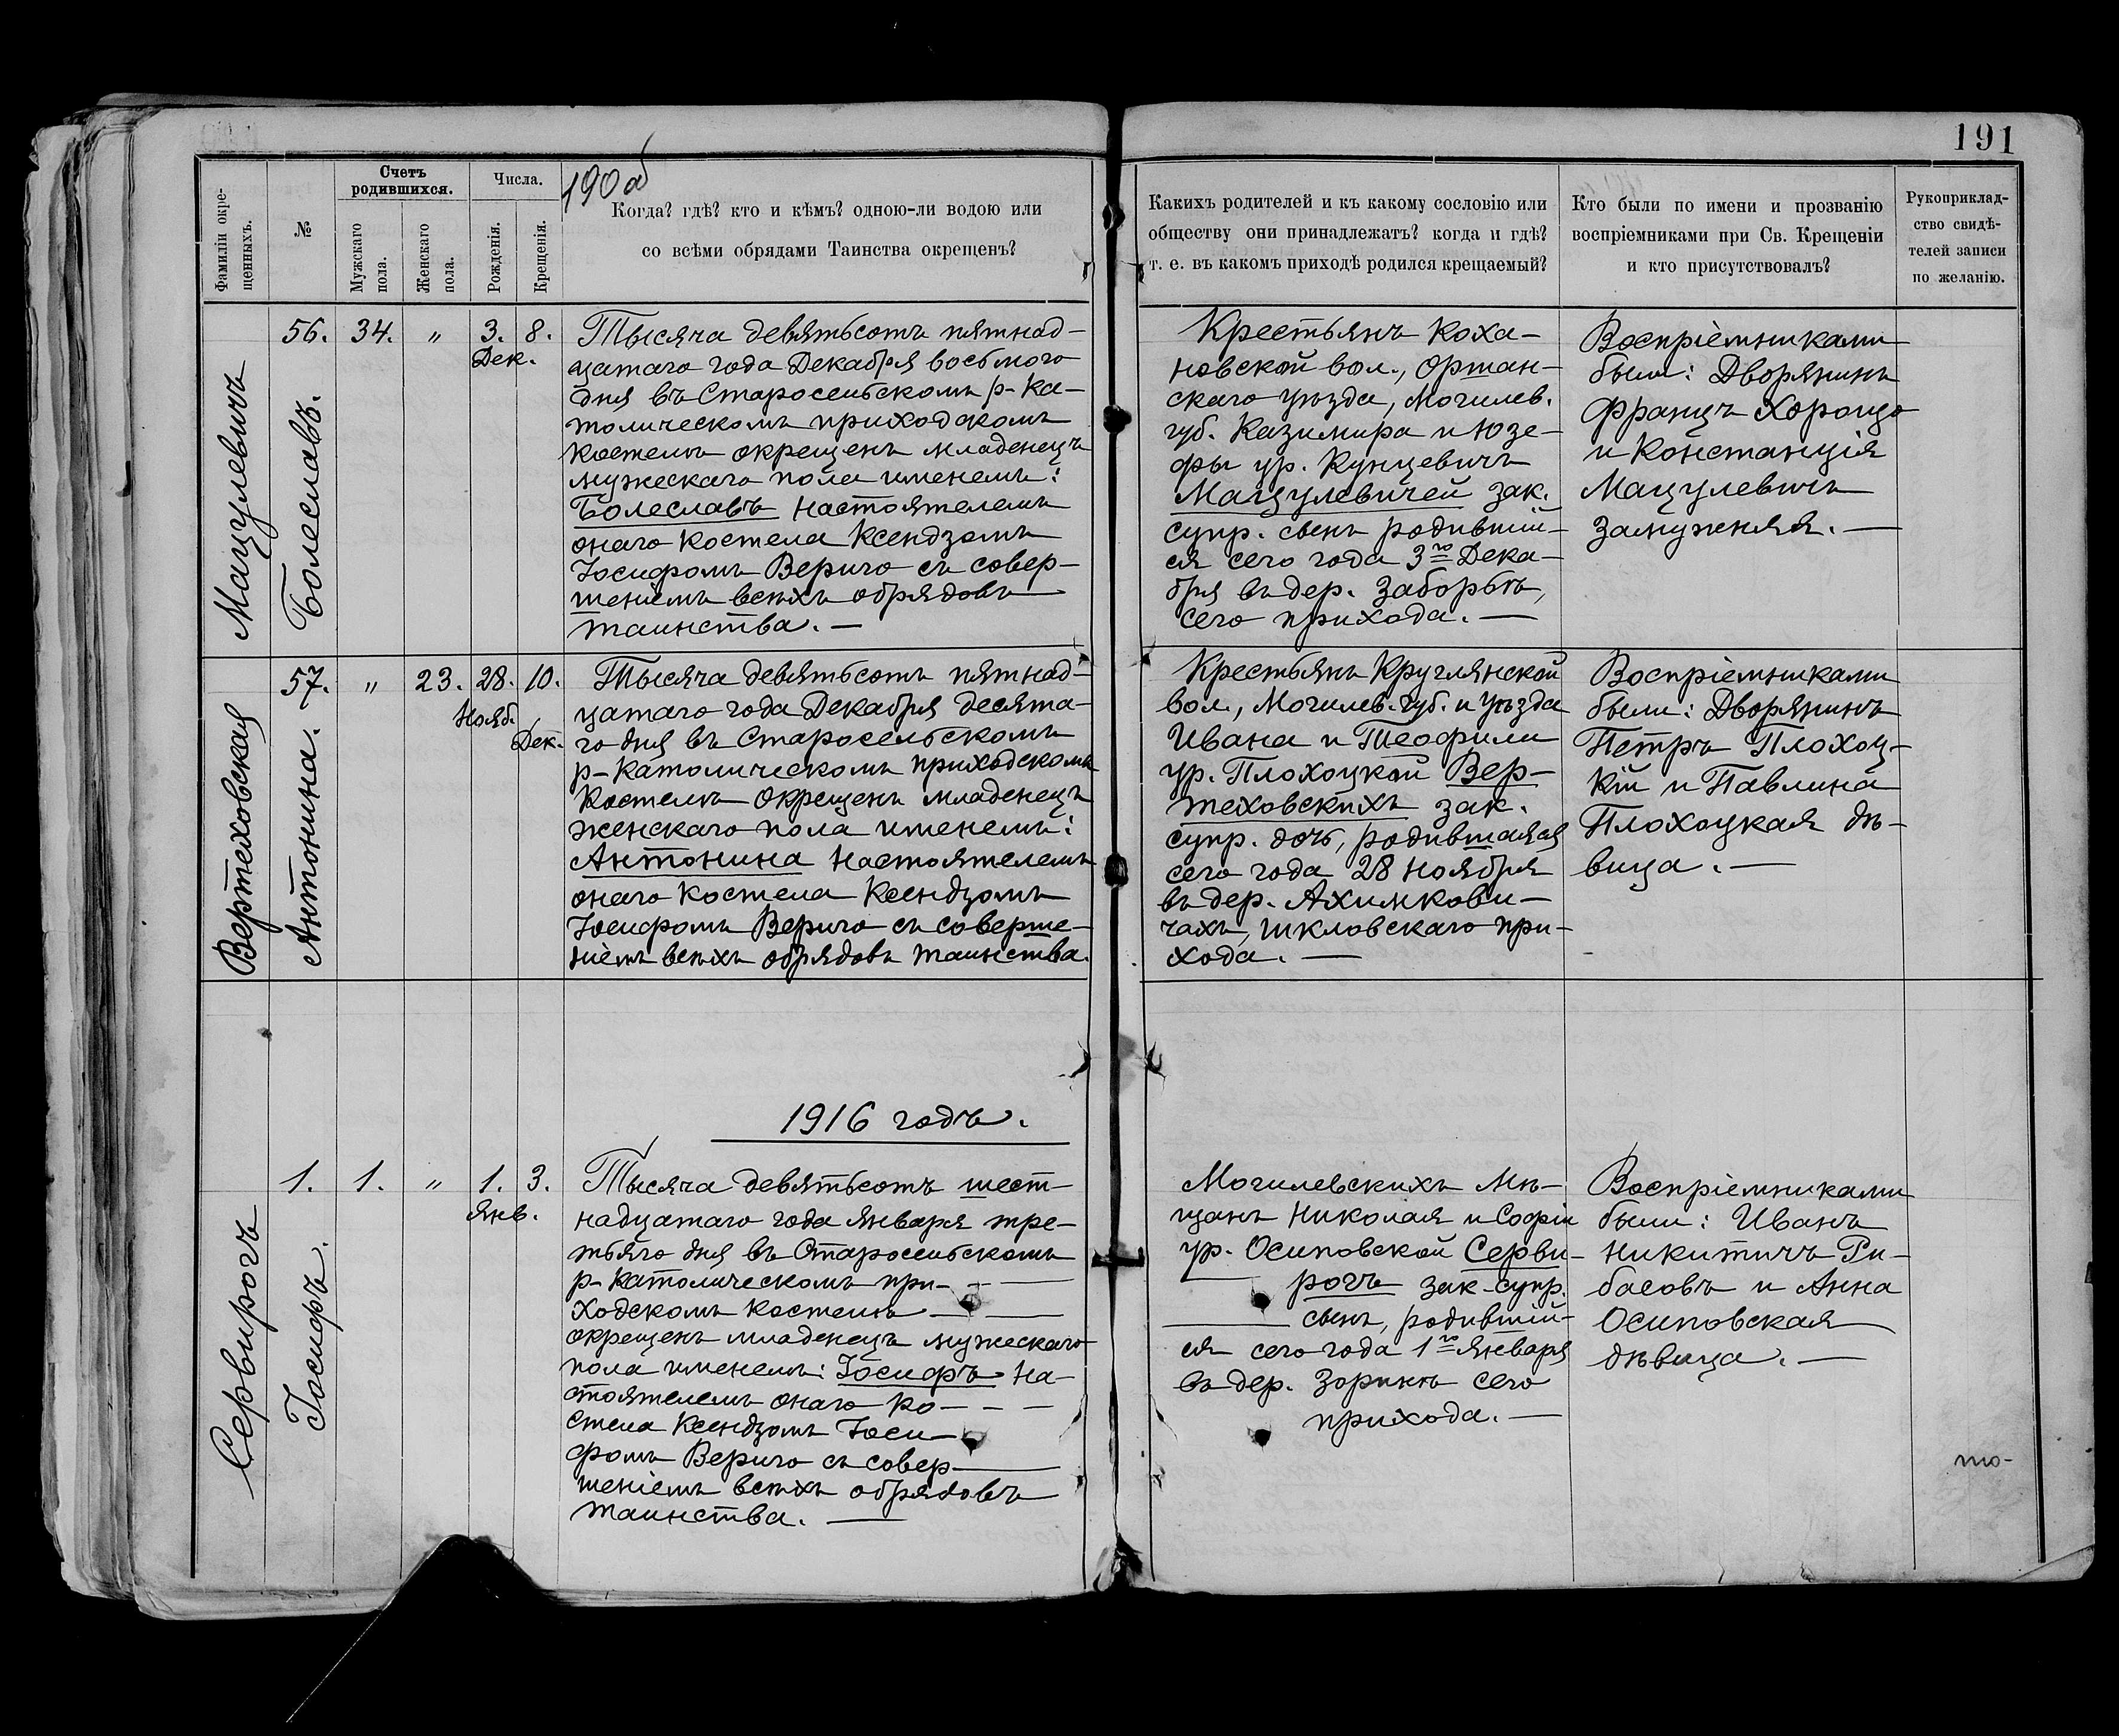 191
190об
Фамиліи окре-
щенныхъ.
№
Счетъ
родившихся.
Мужскаго
пола.
Женскаго
пола.
Числа.
Рожденія.
Крещенія.
Когда? гдѣ? кто и кѣмъ? одною-ли водою или
со всѣми обрядами Таинства окрещенъ?
Какихъ родителей и къ какому сословію или
обществу они принадлежатъ? когда и гдѣ?
т. е. въ какомъ приходѣ родился крещаемый?
Кто были по имени и прозванію
воспріемниками при Св. Крещеніи
и кто присутствовалъ?
Рукоприклад-
ство свидѣ-
телей записи
по желанію.
Мацулевичъ
Болеславъ.
56. 34. " 3. 8.
Дек.
Тысяча девятьсотъ пятнад-
цатаго года Декабря восьмого
дня въ Старосельскомъ р-ка-
толическомъ приходскомъ
костелѣ окрещенъ младенецъ
мужескаго пола именемъ:
Болеславъ настоятелемъ
онаго костела Ксендзомъ
Іосифомъ Верыго съ совер-
шеніемъ всѣхъ обрядовъ
таинства. —
Крестьянъ Коха-
новской вол., Оршан-
скаго уѣзда, Могилев.
губ. Казимира и Юзе-
фы ур. Кунцевичъ
Мацулевичей зак.
супр. сынъ родивший-
ся сего года 3го Дека-
бря въ дер. Заборьѣ,
сего прихода. —
Воспріемниками
были: Дворянинъ
Францъ Хорощо
и Констанція
Мацулевичъ
замужняя. —
Вертеховская
Антонина.
57. " 23. 28. 10.
Нояб.
Дек.
Тысяча девятьсотъ пятнад-
цатаго года Декабря десята-
го дня въ Старосельскомъ
р-католическомъ приходскомъ
костелѣ окрещенъ младенецъ
женскаго пола именемъ:
Антонина настоятелемъ
онаго костела Ксендзомъ
Іосифомъ Верыго съ соверше-
ніемъ всѣхъ обрядовъ таинства.
Крестьянъ Круглянской
вол., Могилев. губ. и уѣзда
Ивана и Теофили
ур. Плохоцкой Вер-
теховскихъ зак.
супр. дочь, родившаяся
сего года 28 Ноября
въ дер. Ахимкови-
чахъ, Шкловскаго при-
хода. —
Воспріемниками
были: Дворянинъ
Петръ Плохоц-
кій и Павлина
Плохоцкая дѣ-
вица. —
1916 годъ.
Сервирогъ
Іосифъ.
1. 1. " 1. 3.
Янв.
Тысяча девятьсотъ шест-
надцатаго года Января тре-
тьяго дня въ Старосельскомъ
р-католическомъ при-
ходскомъ костелѣ —
окрещенъ младенецъ мужескаго
пола именемъ: Іосифъ на-
стоятелемъ онаго ко- - —
стела Ксендзомъ Іоси-
фомъ Верыго съ совер-
шеніемъ всѣхъ обрядовъ
таинства. —
Могилевскихъ Мѣ-
щанъ Николая и Софіи
ур. Осиповской Серви-
рогъ зак. супр.
сынъ, родившій-
ся сего года 1го Января
въ дер. Зоринѣ сего
прихода. —
Воспріемниками
были: Иванъ
Никитичъ Ри-
басовъ и Анна
Осиповская
дѣвица. —
то-